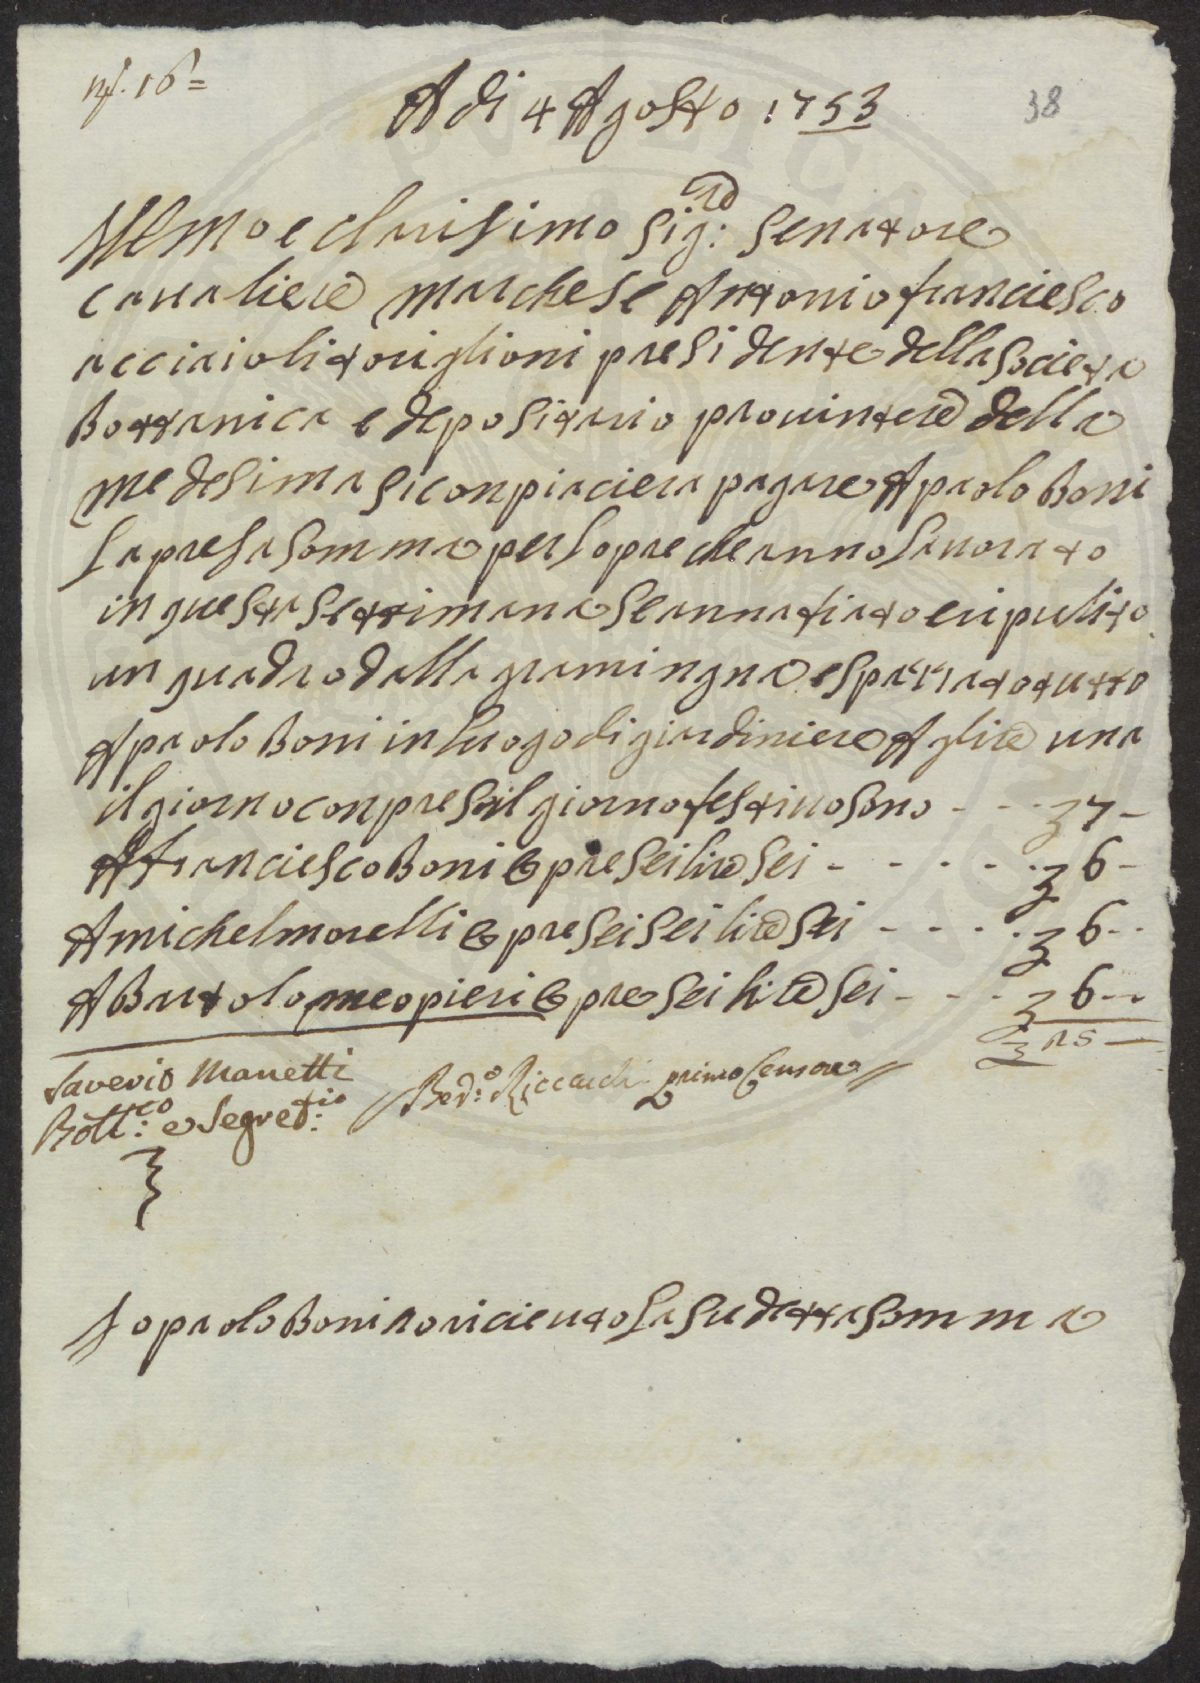 n.o 16=
38
A di 4 Agosto 1753
Illmo e clarisimo Sig:re Senatore
cavaliere marchese Antonio franciesco
acciaioli toriglioni presidente della Societa
Bottanica e depositario provintere della
medesima si conpiaciera pagare A paolo Boni
la presa somma per lopre che anno lavorato
in questa settimana se annafiato e ripulito
un quadro dalla gramingna e spazzato tutto
A paolo Boni in luogo di giardiniere A glire una
il giorno conpreso il giorno festivo sono - - - ʒ 7 -
A franciesco Boni 6 pre sei lire sei - - - - - ʒ 6 -
A michel morelli 6 pre sei sei lire sei - - - - ʒ 6 - -
A Bartolomeo pieri 6 pre sei lire sei - - - ʒ 6 - -
ʒ 25 -
Saverio Manetti
Bott:co e Segret:io
Bed:o Riccardi primo Censore
Io paolo Boni o ricieuto la sudetta somma